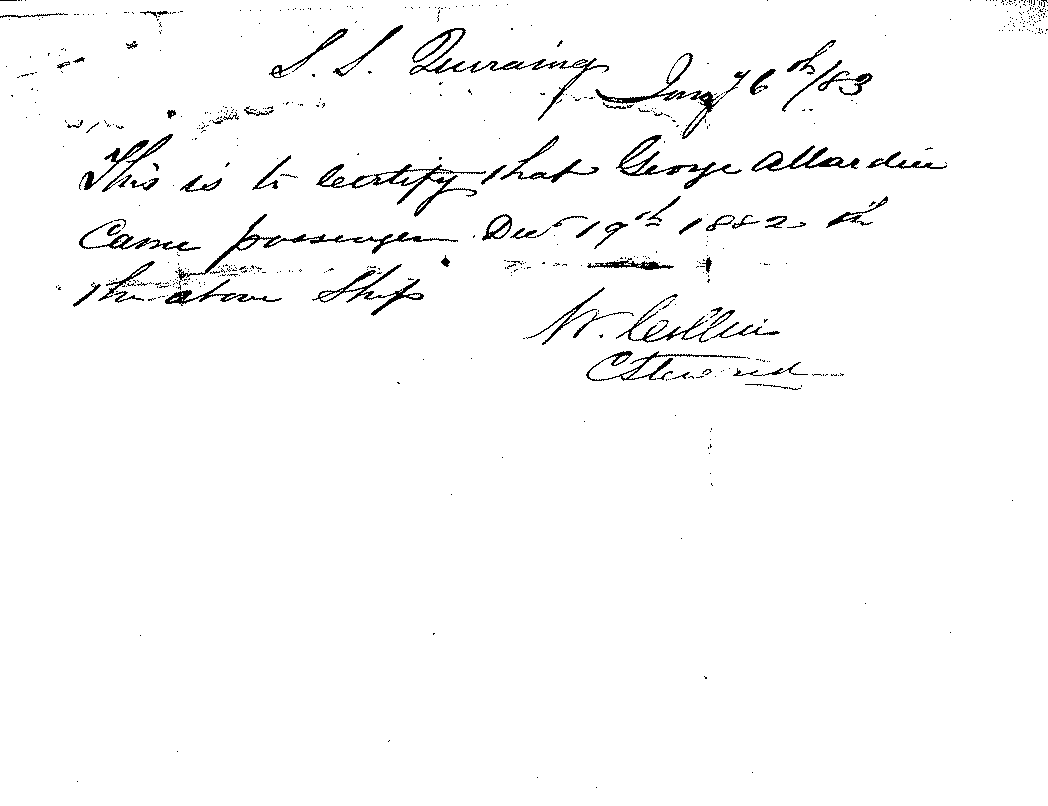 S. S. Quiraing
Jany 6th/83
This is to Certify that George Allardice
Came passenger Decr 19th 1882 in
the above Ship
W. Collin
C Steward